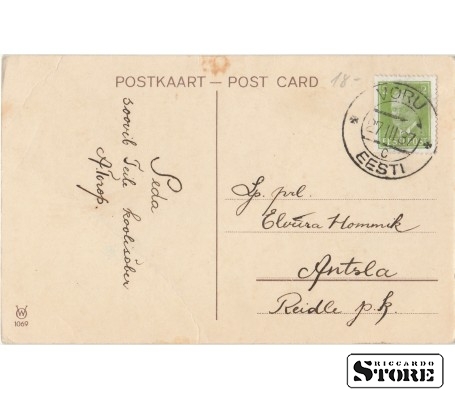 POSTKAART — POST CARD
18-
VÕRU
27 III 37
C
EESTI
Seda
soovib Teile koolisõber
Lp. prl.
Elviira Hommik
Antsla
Reidle p.k.
W
1069
RICCARDO
STORE